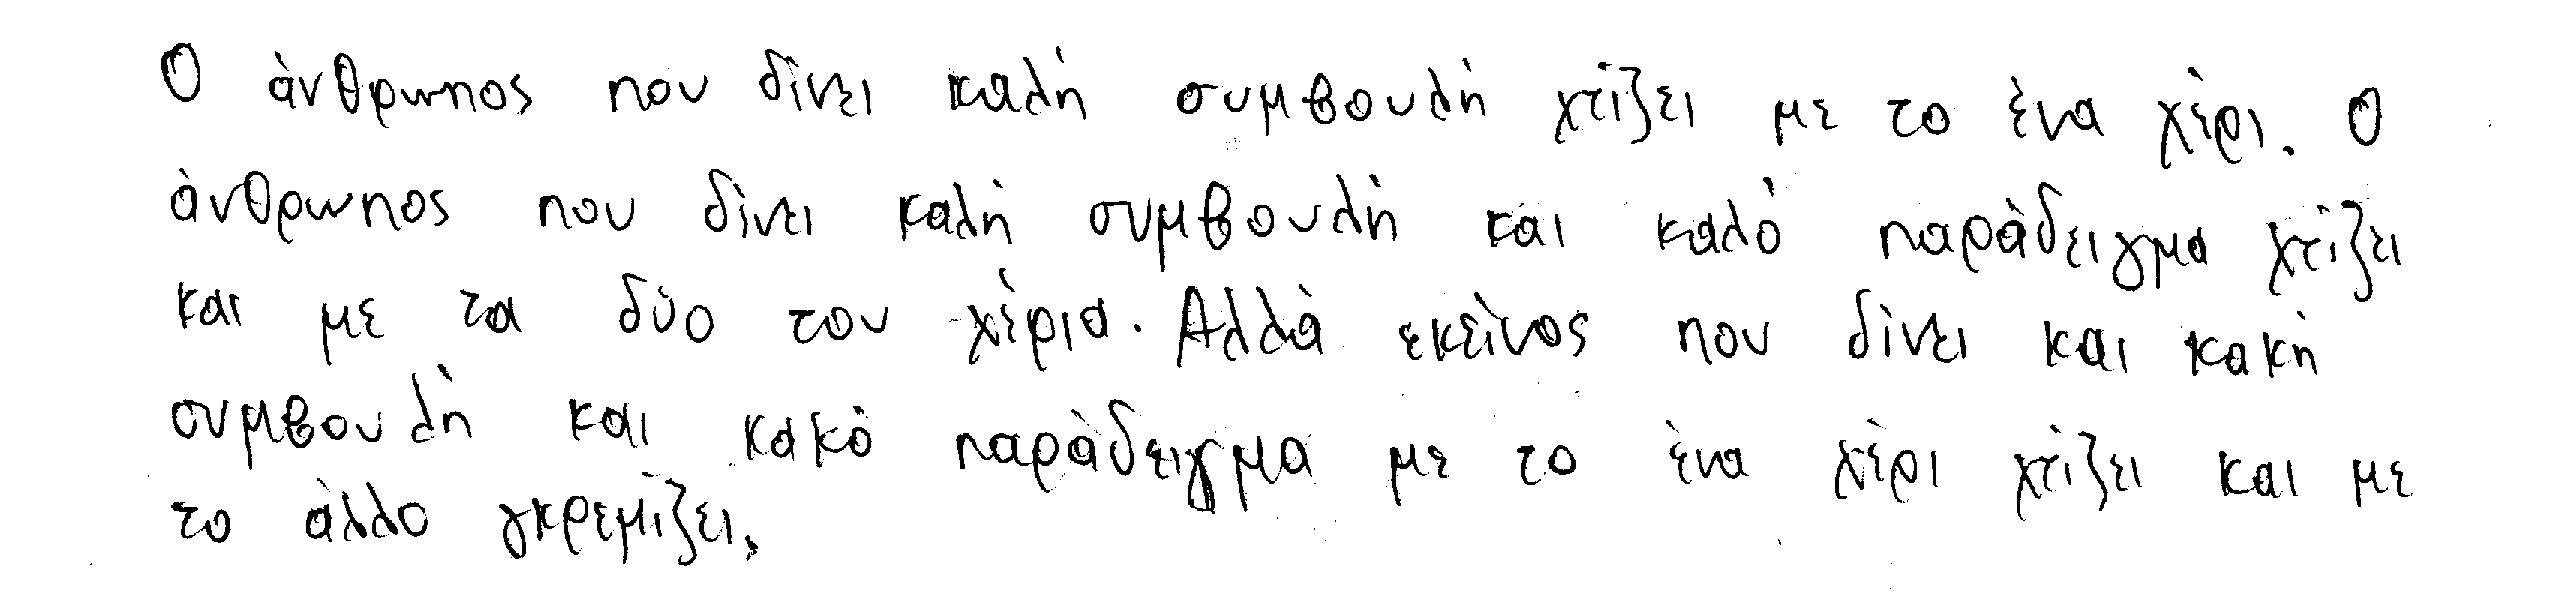 Ο άνθρωπος που δίνει καλή συμβουλή χτίζει με το ένα χέρι. Ο
άνθρωπος που δίνει καλή συμβουλή και καλό παράδειγμα χτίζει
και με τα δύο του χέρια. Αλλά εκείνος που δίνει και κακή
συμβουλή και κακό παράδειγμα με το ένα χέρι χτίζει και με
το άλλο γκρεμίζει.